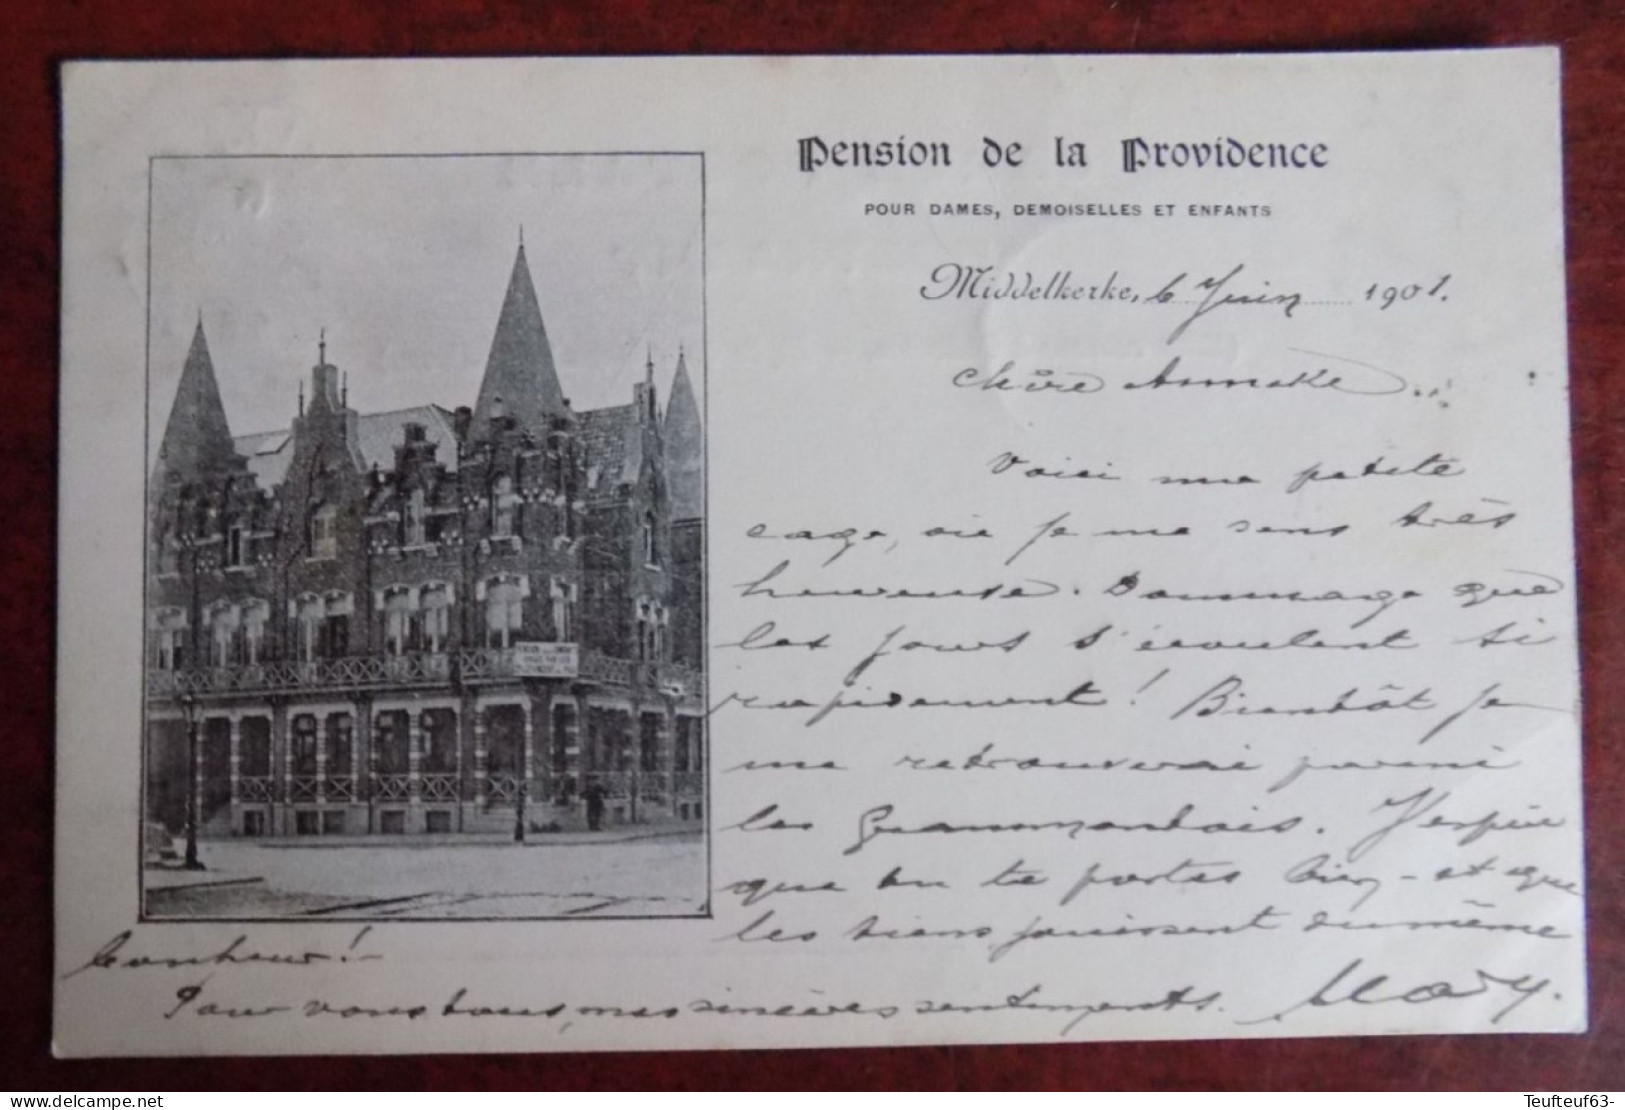 Pension de la Providence
POUR DAMES, DEMOISELLES ET ENFANTS
Middelkerke, 6 Juin 1901.
Chère Annette
Voici ma petite
cage, où je me sens très
heureuse. Dommage que
les jours s'écoulent si
rapidement! Bientôt je
me retrouverai parmi
les Grammontois. J'espère
que tu te portes bien - et que
les tiens jouissent du même
bonheur! -
Pour vous tous, mes sincères sentiments. Mary.
PENSION
Teufteuf63-
delcampe.net